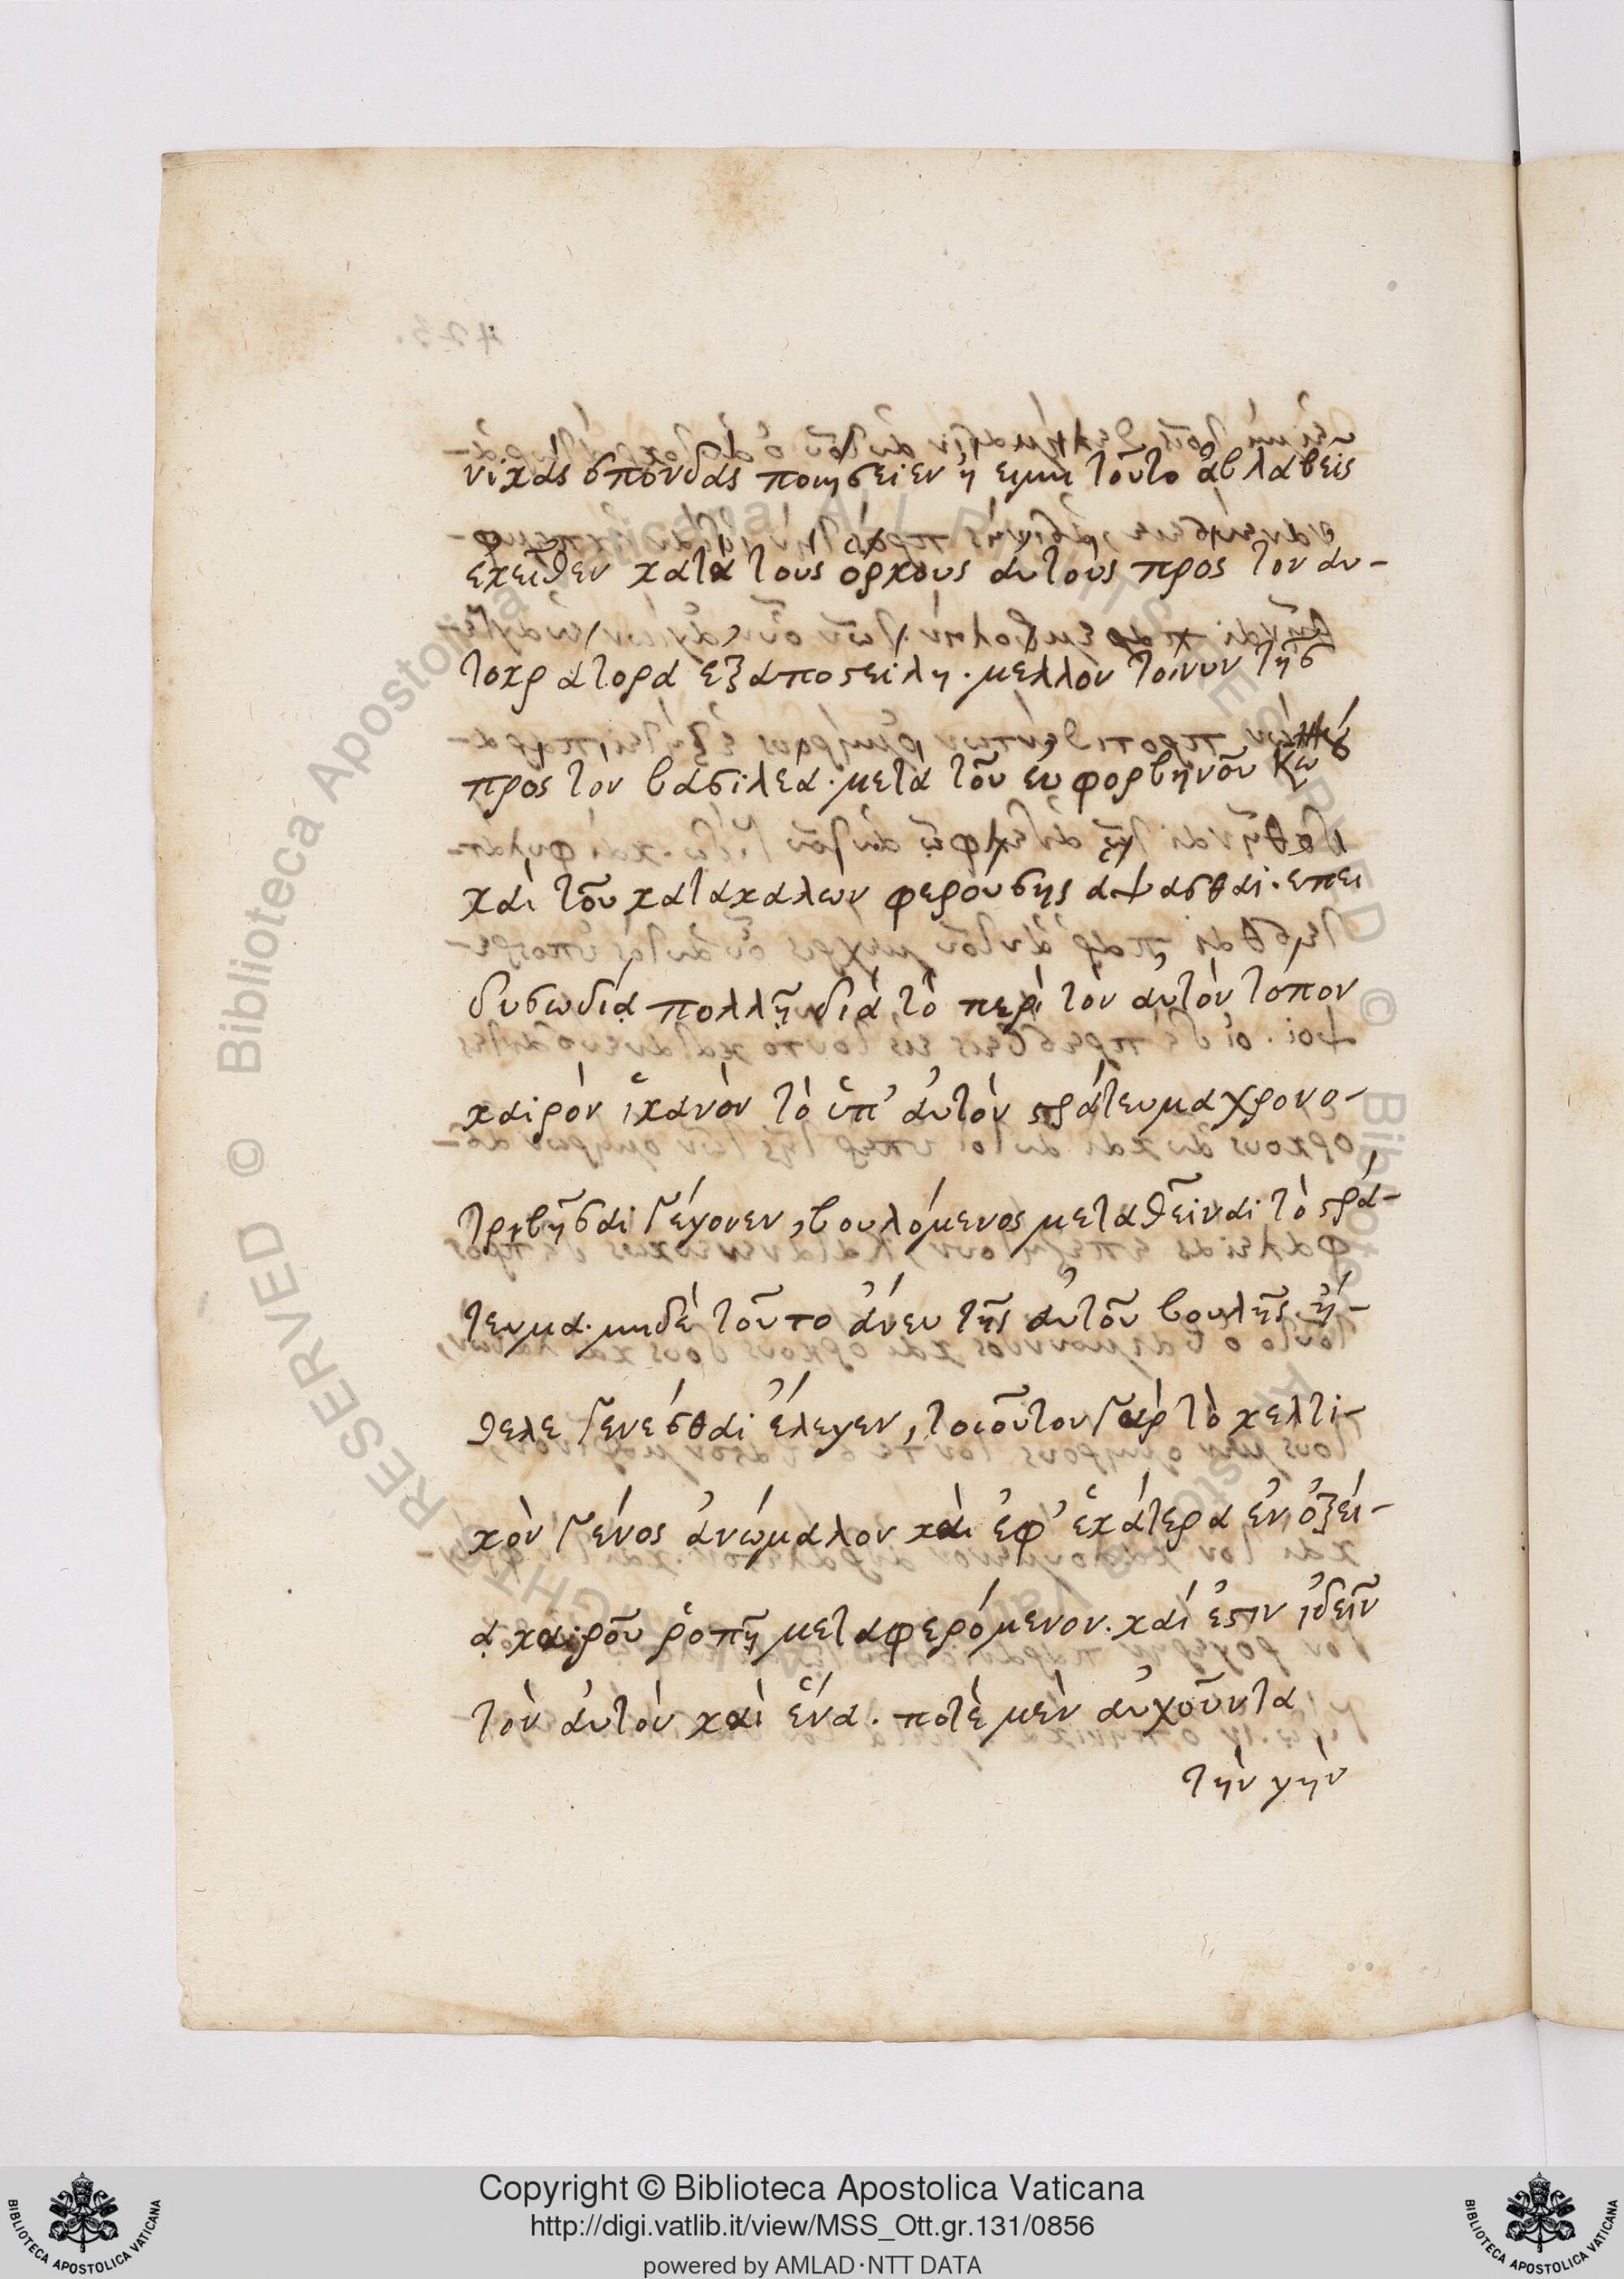 νικὰς σπονδὰς ποιήσειεν ἢ ει μὴ τοῦτο ἀβλαβεῖς
ἐκεῖθεν κατὰ τοὺς ὅρκους αὐτοὺς πρὸς τὸν αυ-
τοκράτορα ἐξαποστείλῃ. μέλλον τοίνυν τῆς
πρὸς τὸν βασιλέα. μετὰ τοῦ εὐφορβηνοῦ Κω
καὶ τοῦ κατακαλὼν φερούσης ἅψασθαι. ἐπεὶ
δυσωδία πολλῆ διὰ τὸ περὶ τὸν αὐτὸν τόπον
καιρὸν ἱκανὸν τὸ ὑπ' αὐτὸν στράτευμα χρονο-
τριβῆσαι γέγονεν, βουλόμενος μεταθεῖναι τὸ στρά-
τευμα. μηδὲ τοῦτο ἄνευ τῆς αὐτοῦ βουλῆς ἤ-
θελε γενέσθαι ἔλεγεν, τοιοῦτον γὰρ τὸ κελτι-
κὸν γένος ἀνώμαλον καὶ ἐφ' ἑκάτερα ἐν ὀξεί-
ᾳ καιροῦ ῥοπῆ μεταφερόμενον. καί ἐστιν ἰδεῖν
τὸν αὐτὸν καὶ ἕνα. ποτὲ μὲν αὐχοῦντα
τὴν γὴν
Copyright © Biblioteca Apostolica Vaticana
http://digi.vatlib.it/view/MSS_Ott.gr.131/0856
powered by AMLAD·NTT DATA
BIBLIOTECA APOSTOLICA VATICANA
BIBLIOTECA APOSTOLICA VATICANA